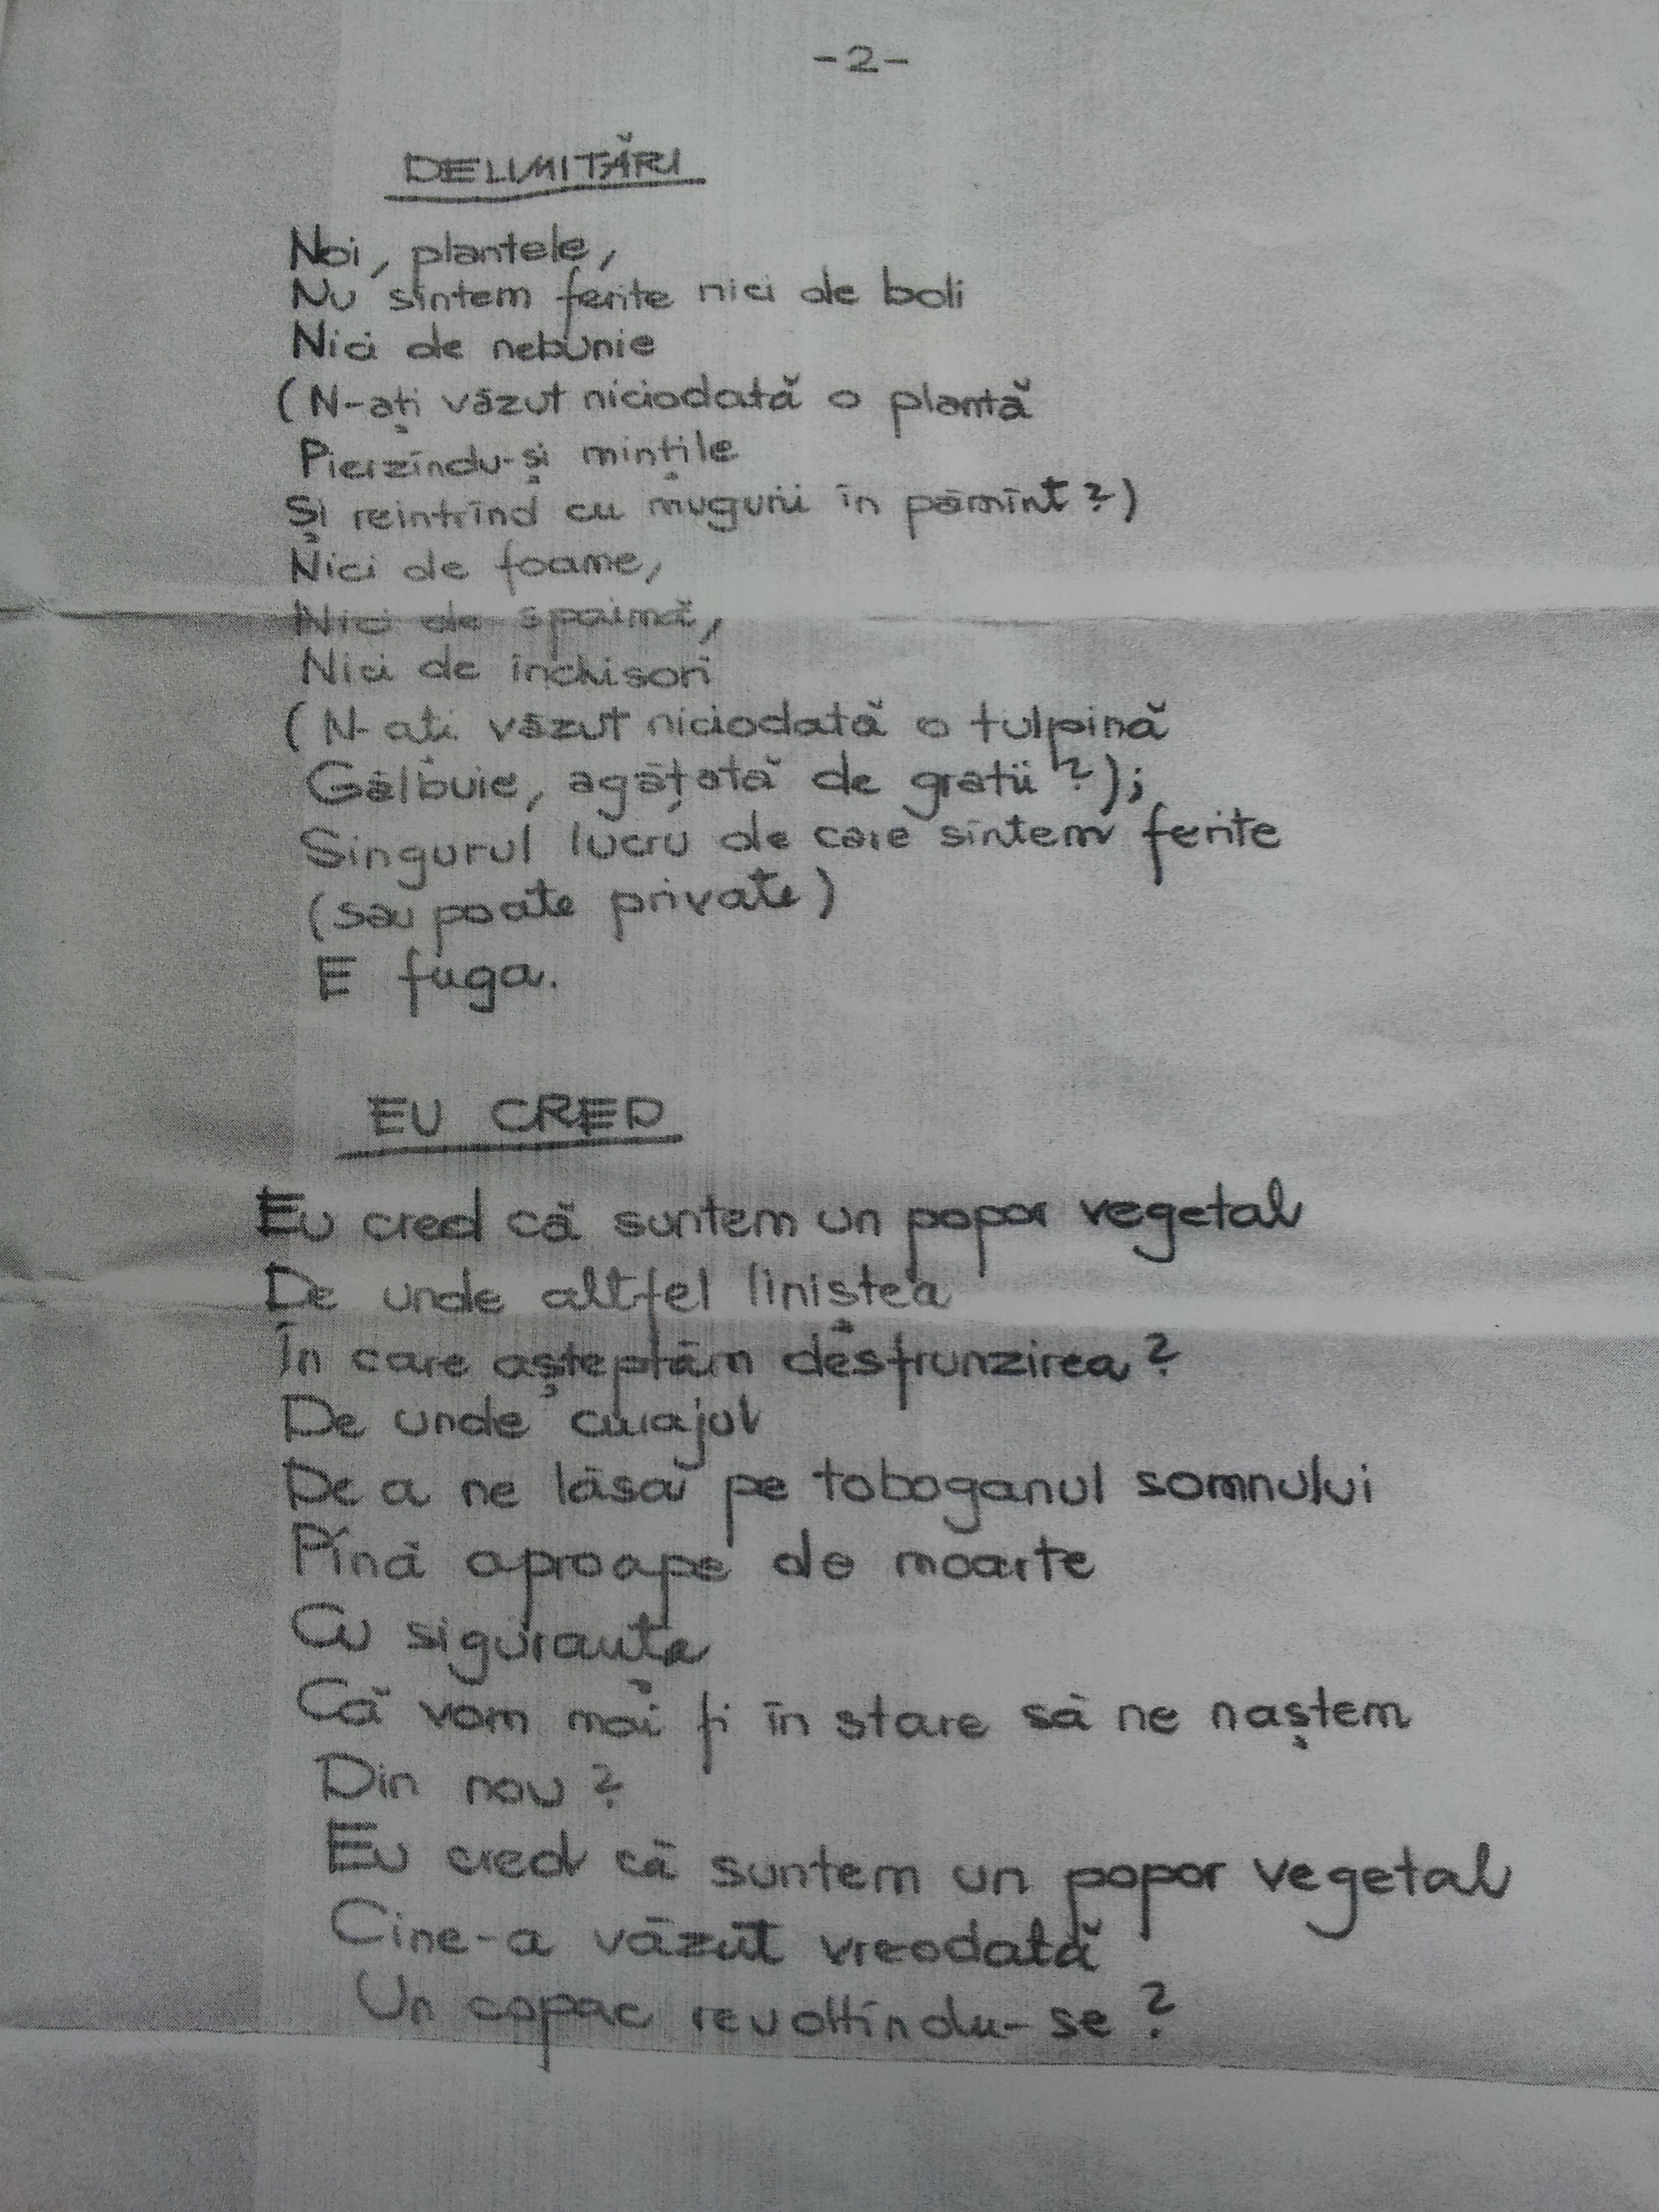 -2-
DELIMITĂRI
Noi, plantele,
Nu sîntem ferite nici de boli
Nici de nebunie
(N-ați văzut niciodată o plantă
Pierzîndu-și mințile
Și reintrînd cu mugurii în pămînt?)
Nici de foame,
Nici de spaimă,
Nici de închisori
(N-ați văzut niciodată o tulpină
Gălbuie, agățată de gratii?);
Singurul lucru de care sîntem ferite
(sau poate private)
E fuga.
EU CRED
Eu cred că suntem un popor vegetal
De unde altfel liniștea
În care așteptăm desfrunzirea?
De unde curajul
De a ne lăsa pe toboganul somnului
Pînă aproape de moarte
Cu siguranța
Că vom mai fi în stare să ne naștem
Din nou?
Eu cred că suntem un popor vegetal
Cine-a văzut vreodată
Un copac revoltîndu-se?